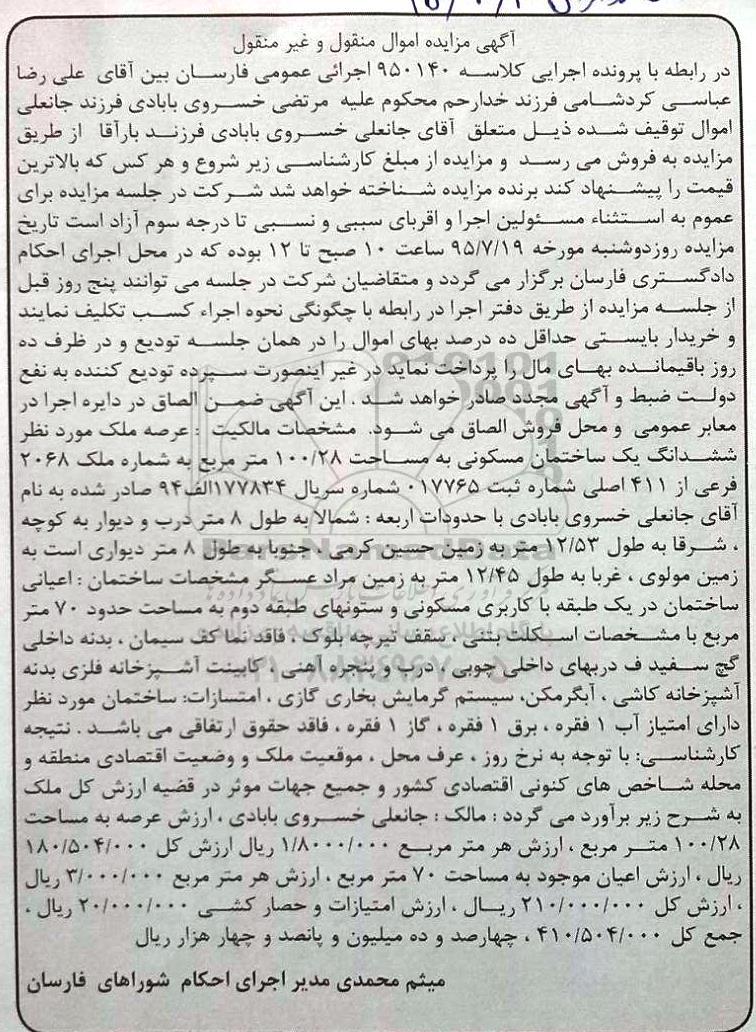 آگهی مزایده اموال منقول و غیر منقول
در رابطه با پرونده اجرایی کلاسه ۹۵۰۱۴۰ اجرائی عمومی فارسان بین آقای علی رضا
عباسی کردشامی فرزند خدارحم محکوم علیه مرتضی خسروی بابادی فرزند جانعلی
اموال توقیف شده ذیل متعلق آقای جانعلی خسروی بابادی فرزند بارآقا از طریق
مزایده به فروش می رسد و مزایده از مبلغ کارشناسی زیر شروع و هر کس که بالاترین
قیمت را پیشنهاد کند برنده مزایده شناخته خواهد شد شرکت در جلسه مزایده برای
عموم به استثناء مسئولین اجرا و اقربای سببی و نسبی تا درجه سوم آزاد است تاریخ
مزایده روزدوشنبه مورخه ۹۵/۷/۱۹ ساعت ۱۰ صبح تا ۱۲ بوده که در محل اجرای احکام
دادگستری فارسان برگزار می گردد و متقاضیان شرکت در جلسه می توانند پنج روز قبل
از جلسه مزایده از طریق دفتر اجرا در رابطه با چگونگی نحوه اجراء کسب تکلیف نمایند
و خریدار بایستی حداقل ده درصد بهای اموال را در همان جلسه تودیع و در ظرف ده
روز باقیمانده بهای مال را پرداخت نماید در غیر اینصورت سپرده تودیع کننده به نفع
دولت ضبط و آگهی مجدد صادر خواهد شد . این آگهی ضمن الصاق در دایره اجرا در
معابر عمومی و محل فروش الصاق می شود. مشخصات مالکیت : عرصه ملک مورد نظر
ششدانگ یک ساختمان مسکونی به مساحت ۱۰۰/۲۸ متر مربع به شماره ملک ۲۰۶۸
فرعی از ۴۱۱ اصلی شماره ثبت ۰۱۷۷۶۵ شماره سریال ۱۷۷۸۳۴الف۹۴ صادر شده به نام
آقای جانعلی خسروی بابادی با حدودات اربعه : شمالا به طول ۸ متر درب و دیوار به کوچه
، شرقا به طول ۱۲/۵۳ متر به زمین حسین کرمی ، جنوبا به طول ۸ متر دیواری است به
زمین مولوی ، غربا به طول ۱۲/۴۵ متر به زمین مراد عسگر مشخصات ساختمان : اعیانی
ساختمان در یک طبقه با کاربری مسکونی و ستونهای طبقه دوم به مساحت حدود ۷۰ متر
مربع با مشخصات اسکلت بتنی ، سقف تیرچه بلوک ، فاقد نما کف سیمان ، بدنه داخلی
گچ سفید ف دربهای داخلی چوبی ، درب و پنجره آهنی ، کابینت آشپزخانه فلزی بدنه
آشپزخانه کاشی ، آبگرمکن، سیستم گرمایش بخاری گازی ، امتسازات: ساختمان مورد نظر
دارای امتیاز آب ۱ فقره ، برق ۱ فقره ، گاز ۱ فقره ، فاقد حقوق ارتفاقی می باشد . نتیجه
کارشناسی: با توجه به نرخ روز ، عرف محل ، موقعیت ملک و وضعیت اقتصادی منطقه و
محله شاخص های کنونی اقتصادی کشور و جمیع جهات موثر در قضیه ارزش کل ملک
به شرح زیر برآورد می گردد : مالک : جانعلی خسروی بابادی ، ارزش عرصه به مساحت
۱۰۰/۲۸ متر مربع ، ارزش هر متر مربع ۱/۸۰۰۰/۰۰۰ ریال ارزش کل ۱۸۰/۵۰۴/۰۰۰
ریال ، ارزش اعیان موجود به مساحت ۷۰ متر مربع ، ارزش هر متر مربع ۳/۰۰۰/۰۰۰ ریال
، ارزش کل ۲۱۰/۰۰۰/۰۰۰ ریال ، ارزش امتیازات و حصار کشی ۲۰/۰۰۰/۰۰۰ ریال ،
جمع کل ۴۱۰/۵۰۴/۰۰۰ ، چهارصد و ده میلیون و پانصد و چهار هزار ریال
میثم محمدی مدیر اجرای احکام شوراهای فارسان